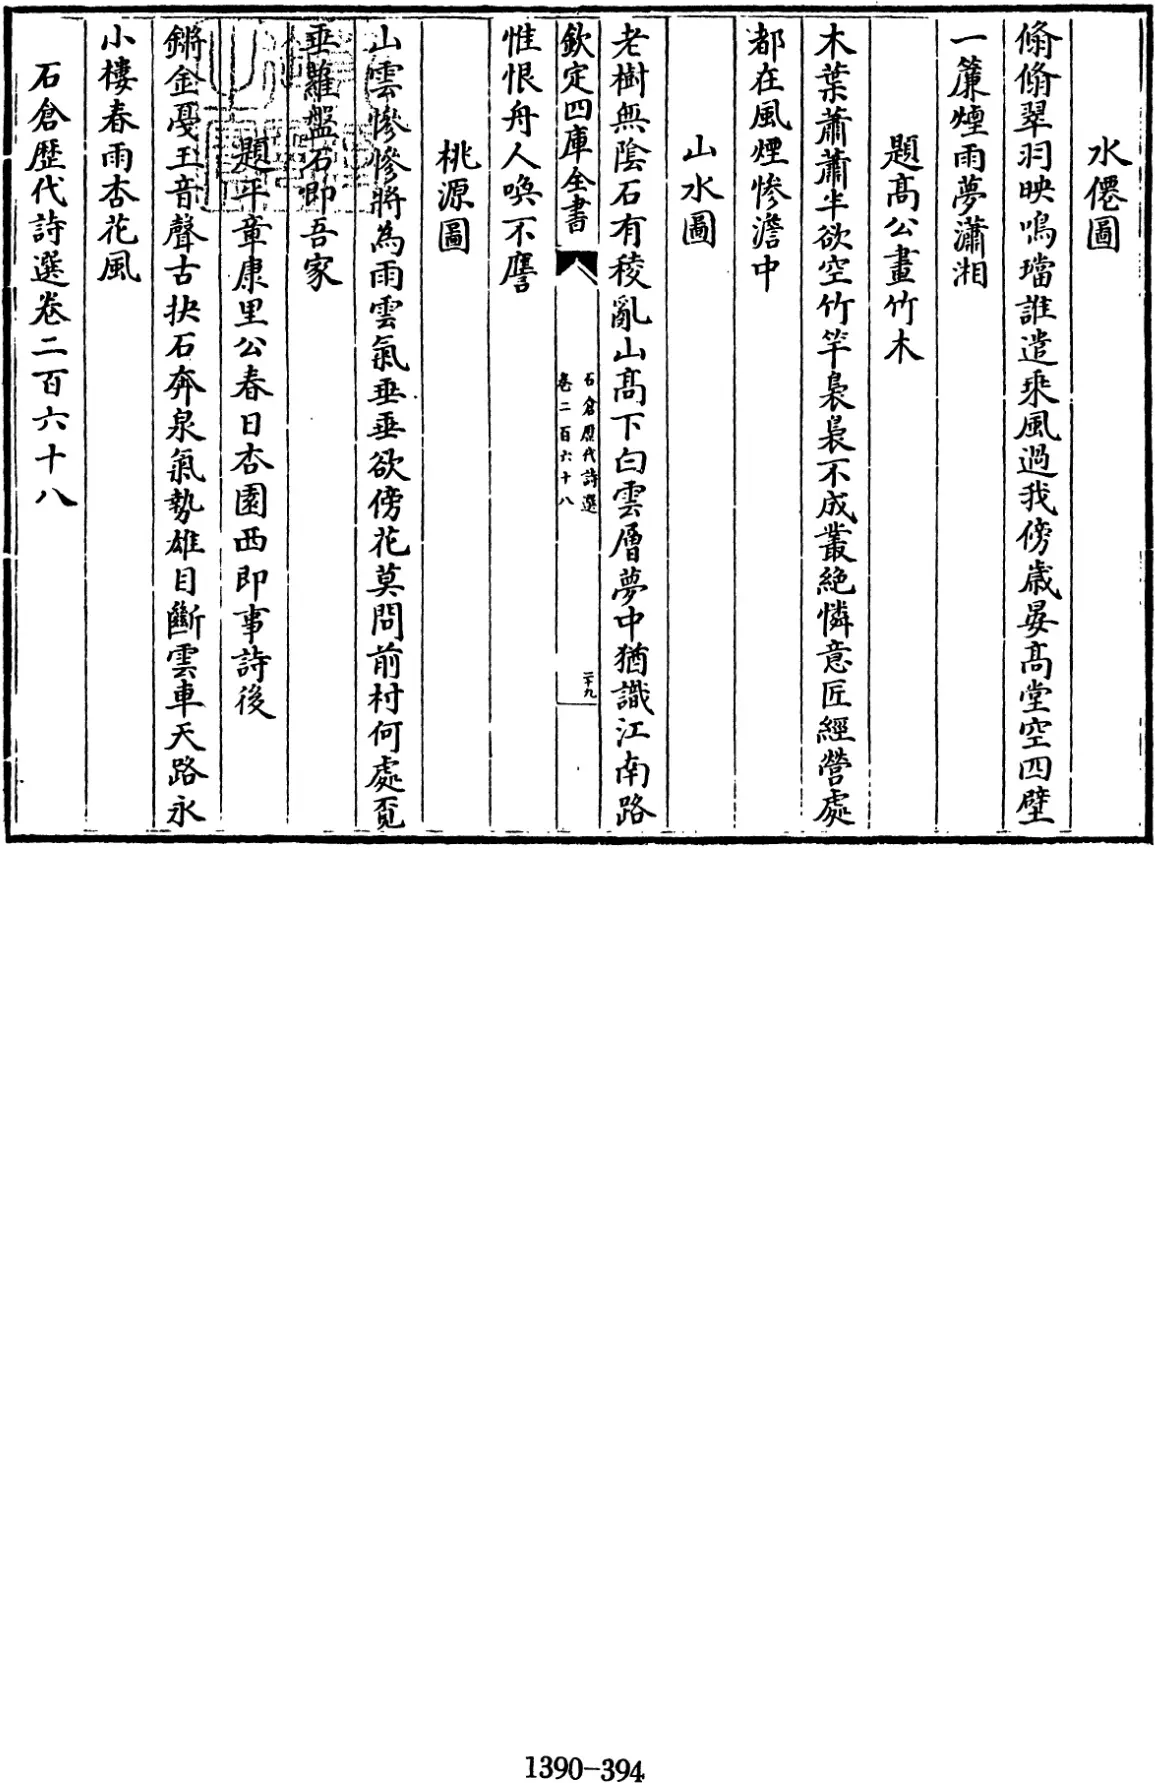 水僊圖
翛翛翠羽映鳴璫誰遣乘風過我傍歲晏髙堂空四壁
一簾煙雨夢瀟湘
題髙公畫竹木
木葉蕭蕭半欲空竹竿裊裊不成叢絶憐意匠經營處
都在風煙慘澹中
山水圖
老樹無陰石有稜亂山髙下白雲層夢中猶識江南路
欽定四庫全書
石倉歴代詩選
卷二百六十八
二十九
惟恨舟人喚不譍
桃源圖
山雲慘慘將為雨雲氣垂垂欲傍花莫問前村何處覓
垂蘿盤石即吾家
題平章康里公春日杏園西即事詩後
鏘金戞玉音聲古抉石奔泉氣勢雄目斷雲車天路永
小樓春雨杏花風
石倉歴代詩選卷二百六十八
1390-394